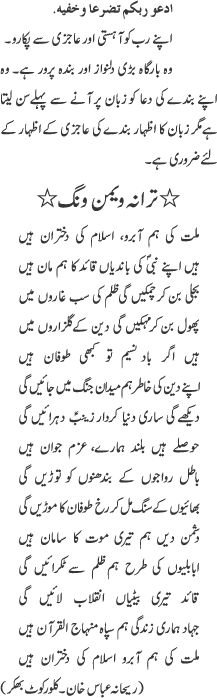 ادعو ربکم تضرعا وخفیہ.
اپنے رب کو آہستی اور عاجزی سے پکارو۔
وہ بارگاہ بڑی دلنواز اور بندہ پرور ہے۔ وہ
اپنے بندے کی دعا کو زبان پر آنے سے پہلے سن لیتا
ہے مگر زبان کا اظہار بندے کی عاجزی کے اظہار کے
لئے ضروری ہے۔
☆ ترانہ ویمن ونگ ☆
ملت کی ہم آبرو، اسلام کی دختران ہیں
ہیں اپنے نبیؐ کی باندیاں قائد کا ہم مان ہیں
بجلی بن کر چمکیں گی ظلم کی سب غاروں میں
پھول بن کر مہکیں گی دین کے گلزاروں میں
ہیں اگر باد نسیم تو کبھی طوفان ہیں
اپنے دین کی خاطر ہم میدان جنگ میں جائیں گی
دیکھے گی ساری دنیا کردار زینبؑ دہرائیں گی
حوصلے ہیں بلند ہمارے، عزم جوان ہیں
باطل رواجوں کے بندھنوں کو توڑیں گی
بھائیوں کے سنگ مل کر رخ طوفان کا موڑیں گی
دشمن دیں ہم تیری موت کا سامان ہیں
ابابلیوں کی طرح ہم ظلم سے ٹکرائیں گی
قائد تیری بیٹیاں انقلاب لائیں گی
جہاد ہماری زندگی ہم سپاہ منہاج القرآن ہیں
ملت کی ہم آبرو اسلام کی دختران ہیں
(ریحانہ عباس خان۔ کلورکوٹ بھکر)